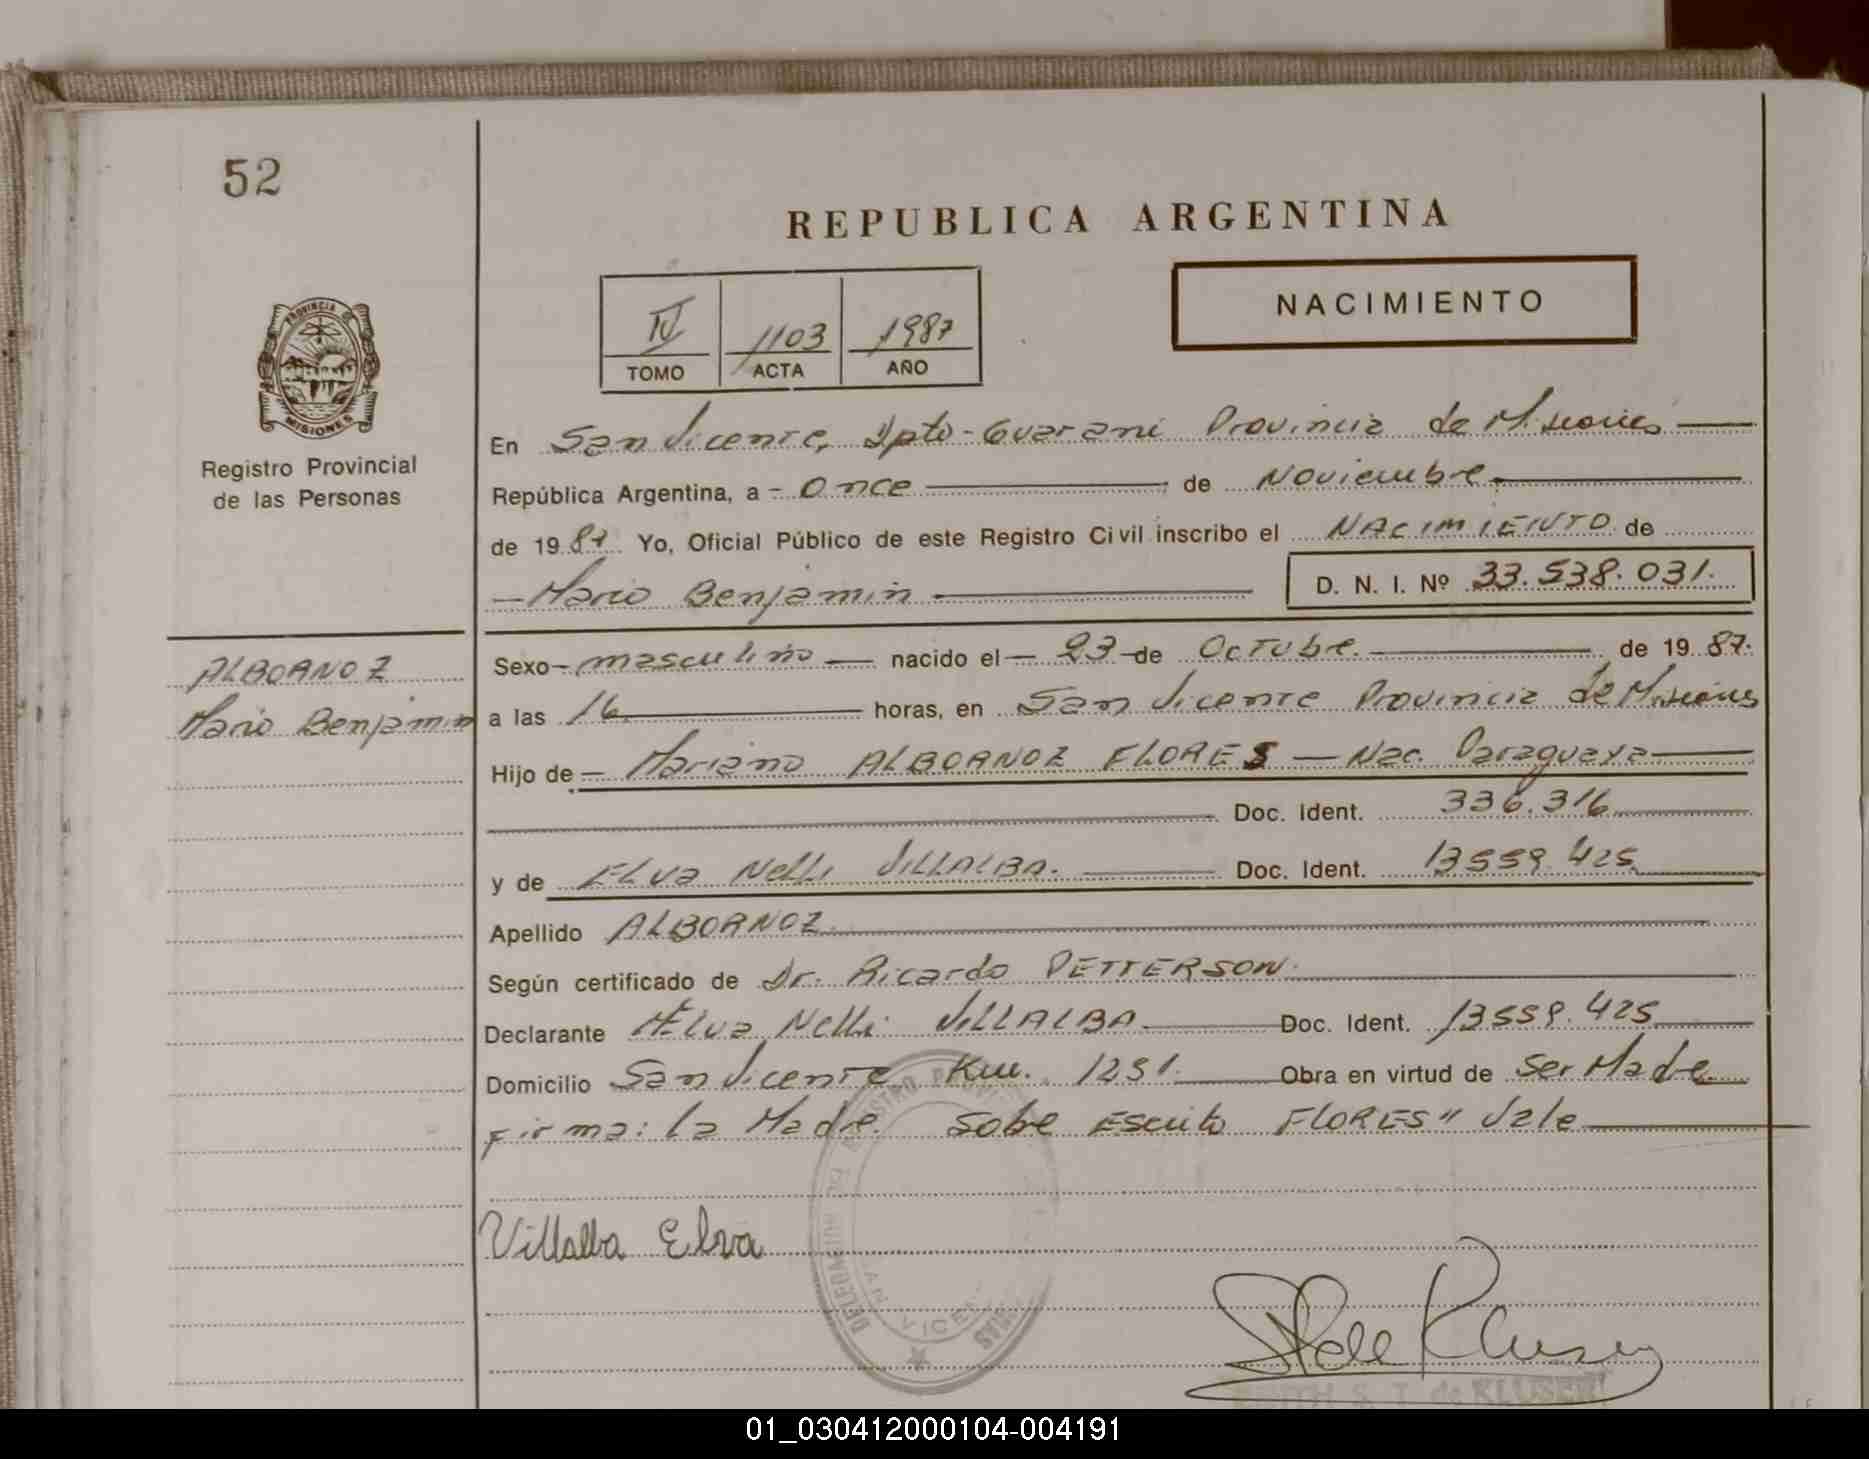 52
REPUBLICA ARGENTINA
NACIMIENTO
IV 1103 1987
TOMO ACTA AÑO
PROVINCIA DE
MISIONES
Registro Provincial
de las Personas
En San Vicente, Dpto-Guarani Provincia de Misiones
República Argentina, a - Once de Noviembre.
de 1987 Yo, Oficial Público de este Registro Civil inscribo el NACIMIENTO de
- Mario Benjamin D. N. I. Nº 33.538.031.
ALBORNOZ
Mario Benjamin
Sexo - masculino - nacido el - 23 - de Octubre. de 1987.
a las 16 horas, en San Vicente Provincia de Misiones
Hijo de - Mariano ALBORNOZ FLORES - Nac. Paraguaya
Doc. Ident. 336.316
y de Elva Nelli VILLALBA. Doc. Ident. 13559.425
Apellido ALBORNOZ
Según certificado de Dr. Ricardo PETTERSON.
Declarante Elva Nelli VILLALBA Doc. Ident. 13559.425
Domicilio San Vicente Km. 1251. Obra en virtud de Ser Madre
Firma: la Madre. Sobe Escrito FLORES" Vale
Villalba Elva
S. T. de KLUSER
01_030412000104-004191